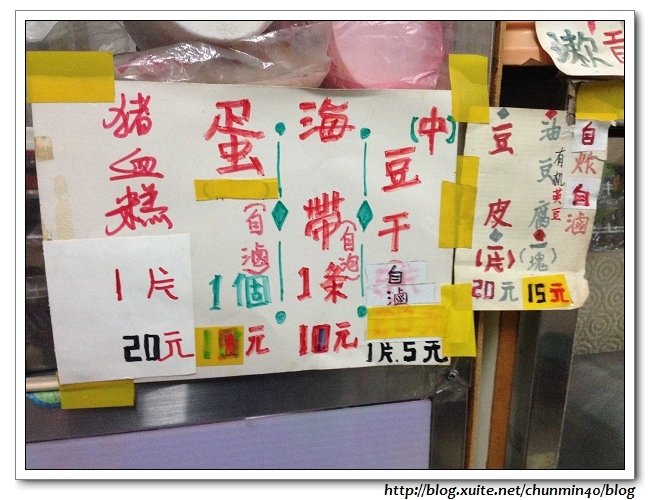 猪血糕
1片
20元
蛋
自滷
1個
10元
海帶
自泡
1条
10元
(中)
豆干
自滷
1片.5元
豆皮
(一片)
20元
油豆腐
有机黃豆
(一塊)
15元
自炸自滷
漱
http://blog.xuite.net/chunmin40/blog